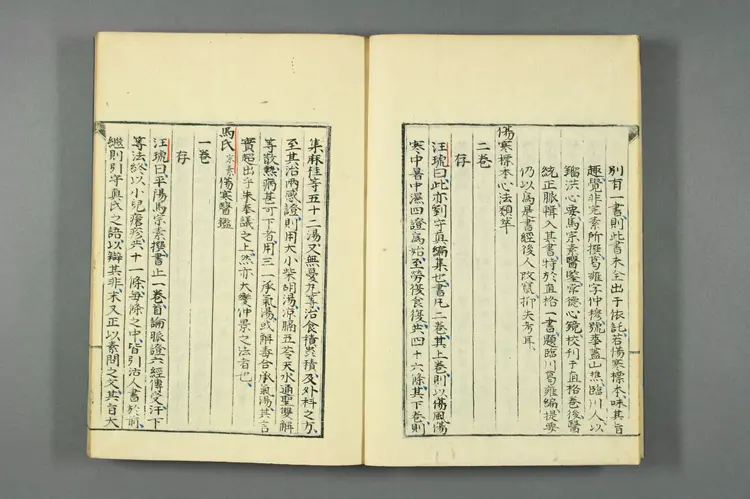 別有一書則此書未全出于依託若傷寒標本味其旨
趣覺非完素所撰葛雍字仲穆號華蓋山樵臨川人以
鎦洪心要馬宗素醫鑒常德心鏡校刊于直格卷後醫
統正脈輯入其書特於直格一書題臨川葛雍編提要
仍以爲是書經後人改竄抑失考耳
傷寒標本心法類萃
二卷
存
汪琥曰此亦劉守真編集也書凡二卷其上卷則以傷風傷
寒中暑中濕四證爲始至勞復食復共四十六條其下卷則
集麻桂等五十二湯又無憂丸等治食積痰積及外科之方
至其治兩感證則用大小柴胡湯涼膈五苓天水通聖雙解
等散熱病甚可下者用三一承氣湯或解毒合承氣湯其言
實超出乎朱奉議之上然亦大變仲景之法者也
馬氏宗素傷寒醫鑑
一卷
存
汪琥曰平陽馬宗素撰書止一卷首論脈證六經傳受汗下
等法終以小兒瘡疹共十一條每條之中皆引活人書於前
繼則引守真氏之語以辯其非末又正以素問之文其旨大